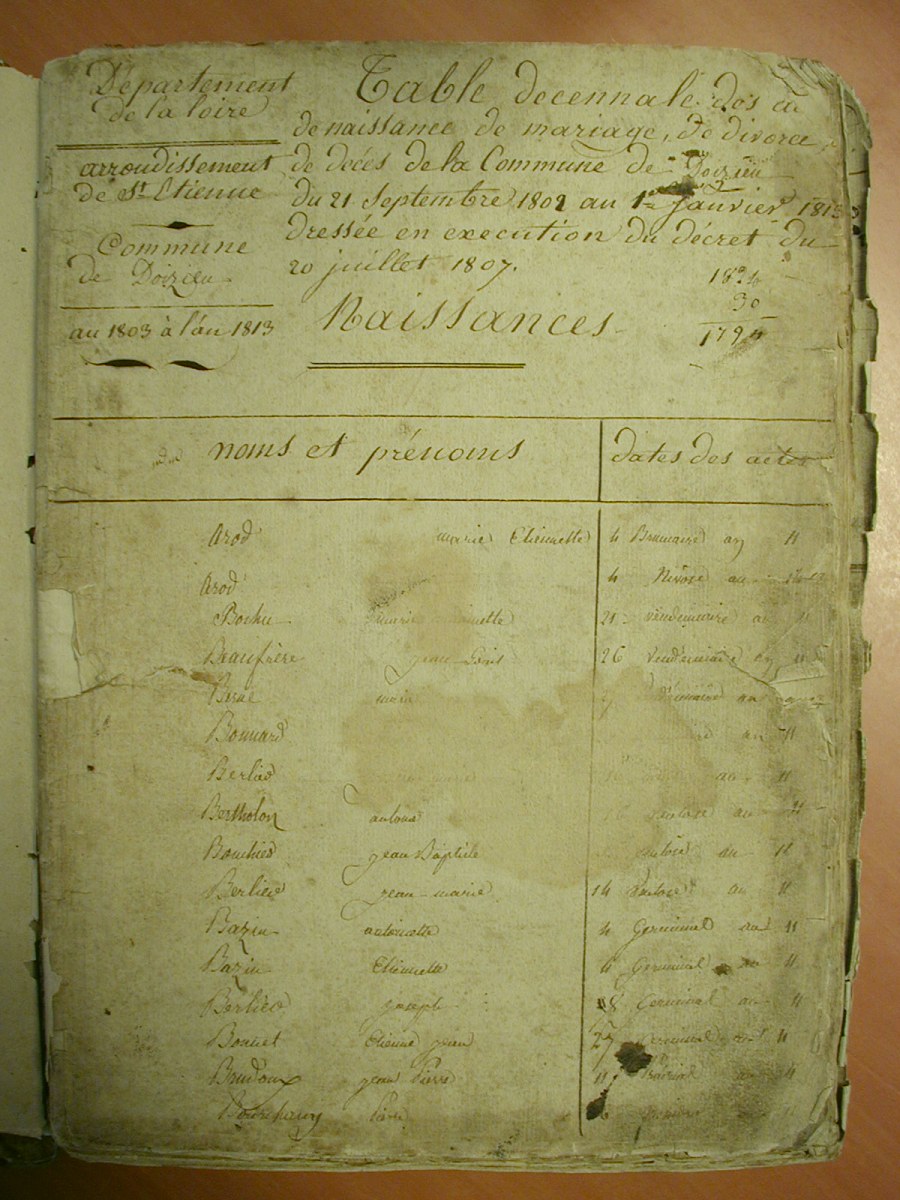 Département
de la loire
arrondissement
de St. Etienne
Commune
de Doizieu
an 1803 à l'an 1813
Table decennale des
de naissance de mariage, de divorce
de decés de la Commune de Doizieu
du 21 Septembre 1802 au 1er Janvier 1813
dressée en execution du décret du
20 juillet 1807.
1824
30
1794
Naissances
noms et prénoms dates des actes
Arod marie Etiennette 4 Brumaire an 11
Arod 4 Nivose an
Bochu marie 21 vendemiaire 11
Beaufrère jean 26 vendemiaire an 11
marie an
Bonnard an 11
Berlier an 11
Bertholon antoine ventose an 11
Bouchier jean Baptiste ventose an 11
Berlier jean marie 14 ventose an 11
Bazin antoinette 4 Germinal an 11
Bazin Etiennette Germinal an 11
Berlier joseph 18 Germinal an 11
Bonnet Etienne jean 27 Germinal an 11
jean Pierre an 11